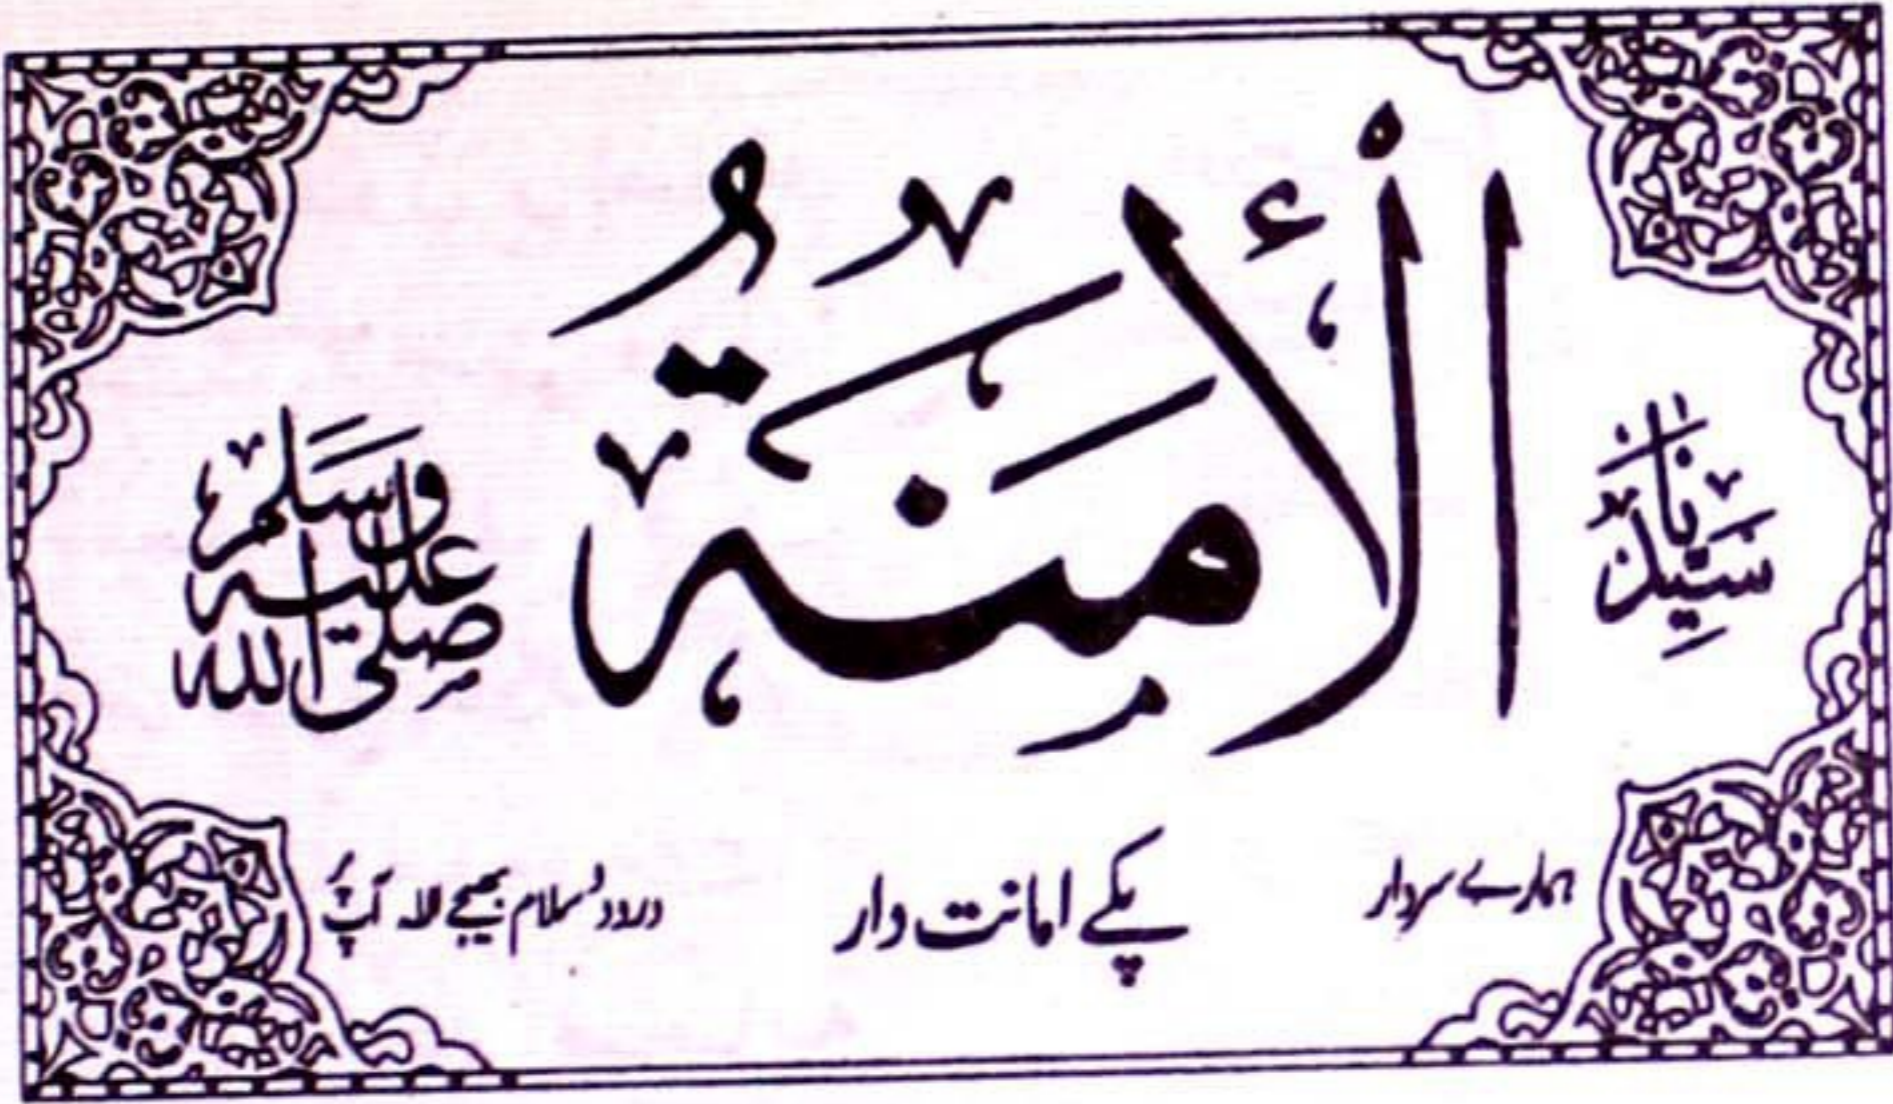 سَيِّدُنَا الْأَمَنَةُ صلى الله عليه وسلم
ہمارے سردار پکے امانت دار درود و سلام بھیجے اللہ آپ پر